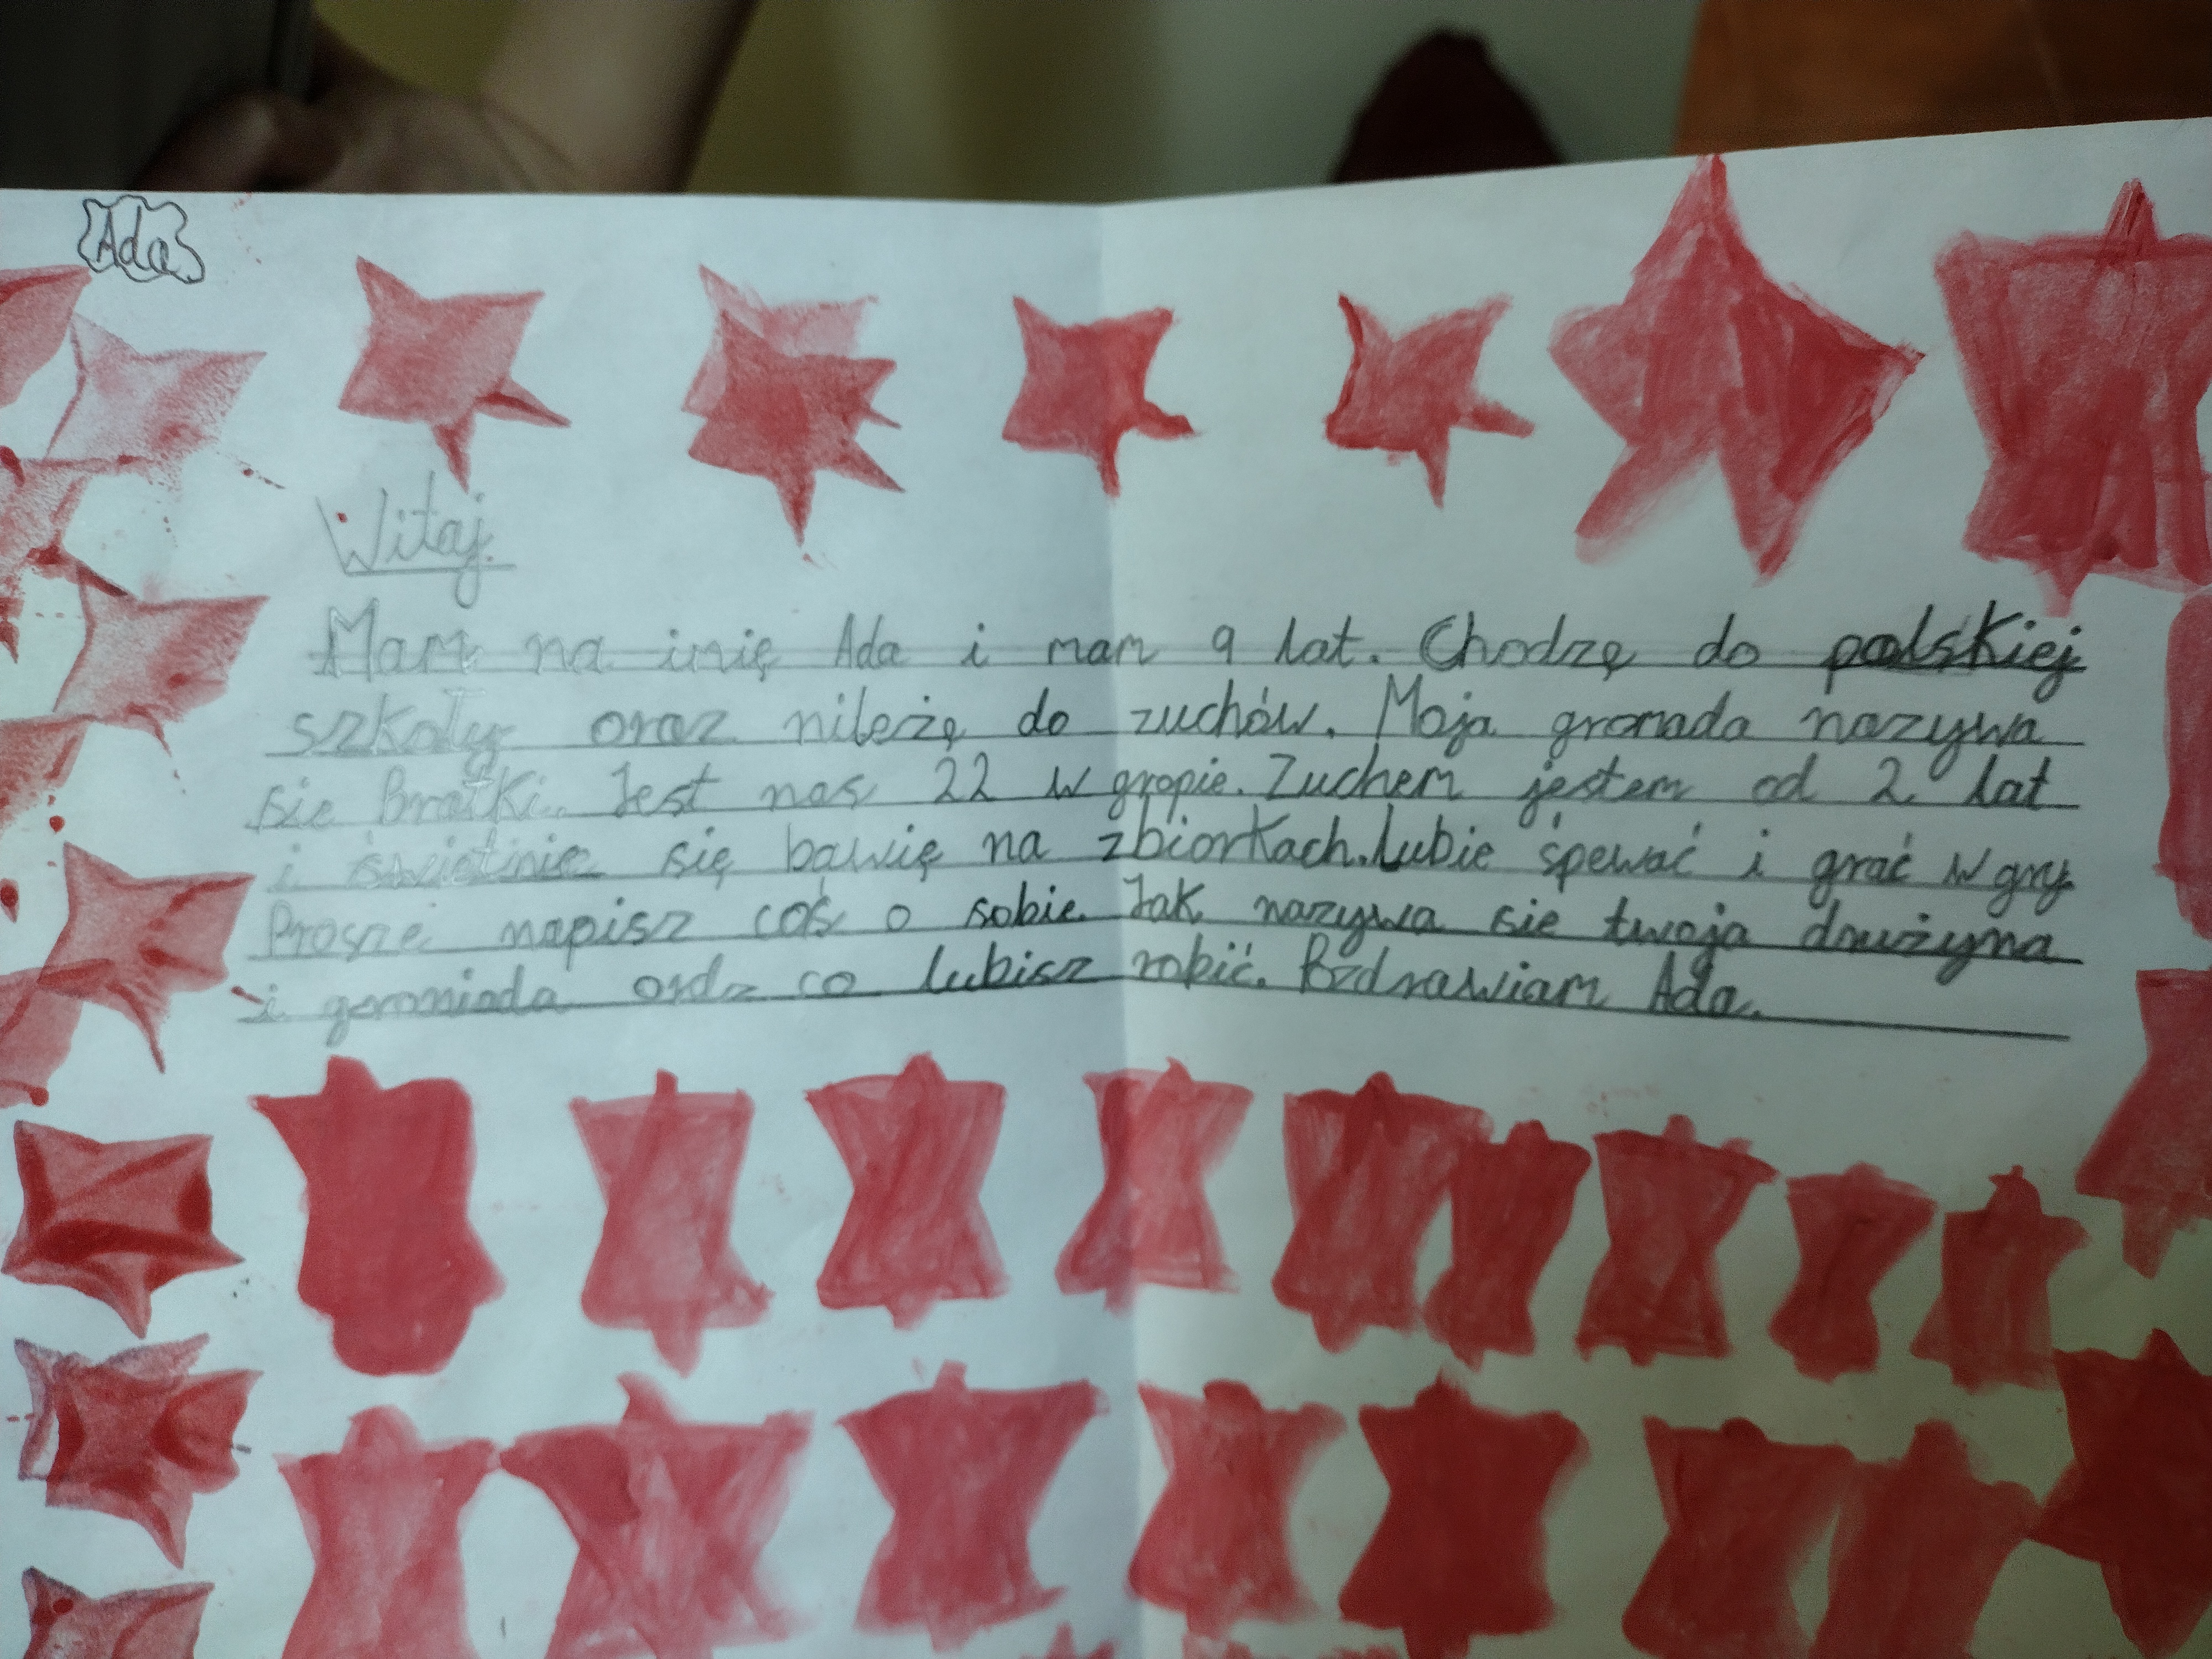 Ada
Witaj.
Mam na imię Ada i mam 9 lat. Chodzę do polskiej
szkoły oraz nileżę do zuchów. Moja gromada nazywa
sie Bratki. Jest nas 22 w gropie. Zuchem jestem od 2 lat
i świetinie się bawię na zbiorkach. Lubie śpewać i grać w gry.
Prosze napisz coś o sobie. Jak nazywa sie twoja drużyna
i gromiada ordz co lubisz robić. Pozdrawiam Ada.